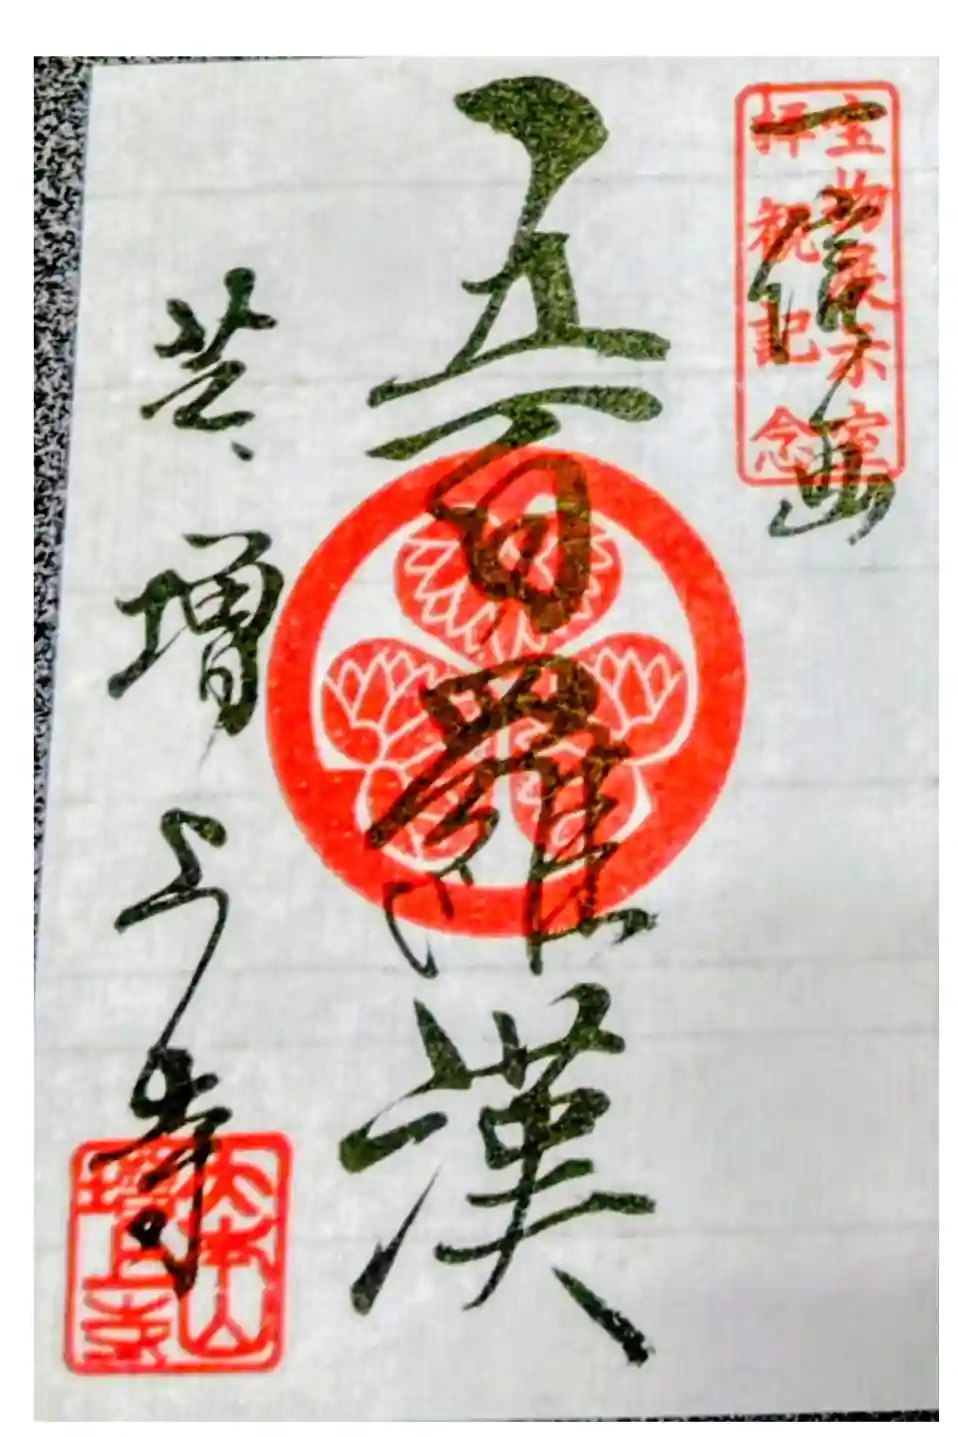 宝物展示室
拝観記念
一信画
五百羅漢
芝 増上寺
大本山
增上寺